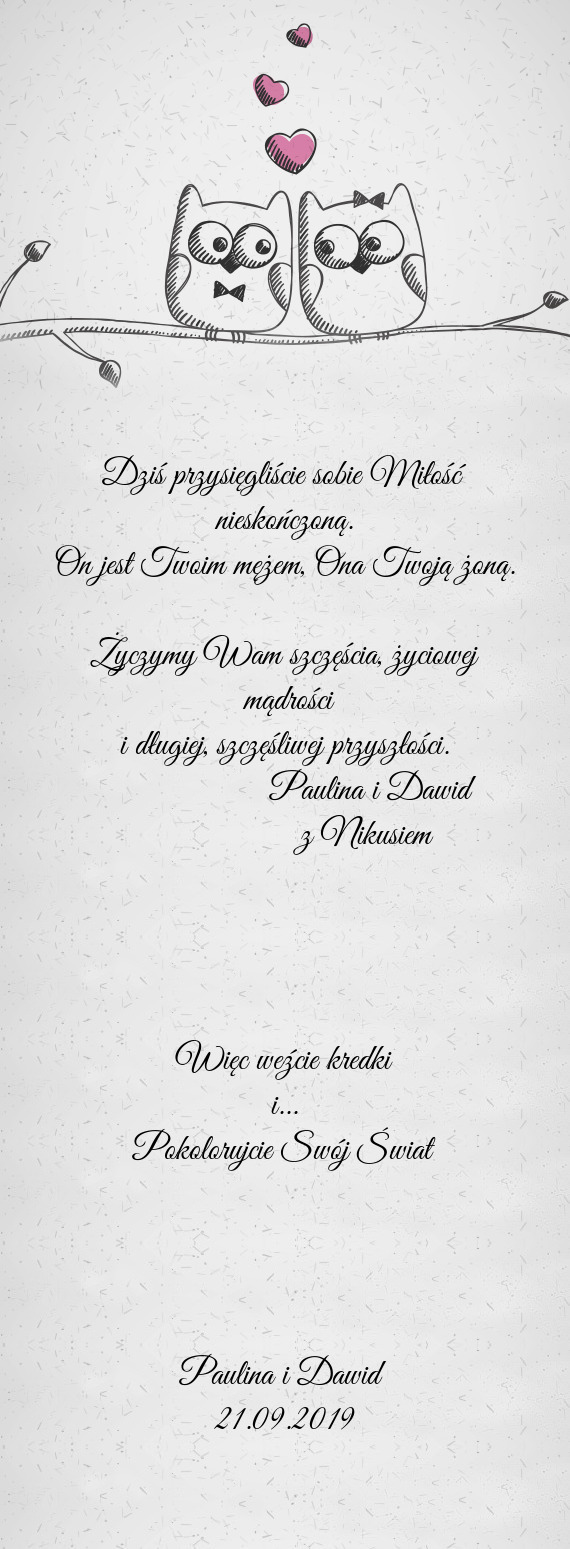 Dziś przysięgliście sobie Miłość
nieskończoną.
On jest Twoim mężem, Ona Twoją żoną.
Życzymy Wam szczęścia, życiowej
mądrości
i długiej, szczęśliwej przyszłości.
Paulina i Dawid
z Nikusiem
Więc weźcie kredki
i...
Pokolorujcie Swój Świat
Paulina i Dawid
21.09.2019